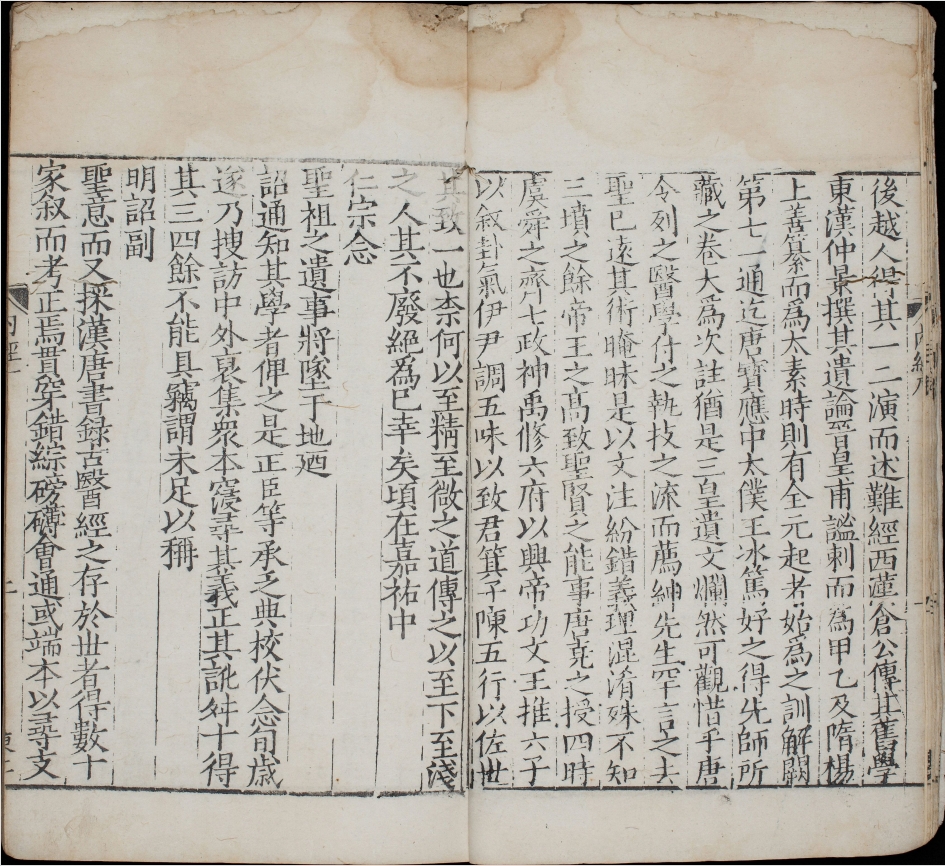 後越人得其一二演而述難經西漢倉公傳其舊學
東漢仲景撰其遺論晉皇甫謐刺而爲甲乙及隋楊
上善纂而爲太素時則有全元起者始爲之訓解闕
第七一通迄唐寶應中太僕王冰篤好之得先師所
藏之卷大爲次註猶是三皇遺文爛然可觀惜乎唐
令列之醫學付之執技之流而薦紳先生罕言之去
聖已遠其術晻昧是以文注紛錯義理混淆殊不知
三墳之餘帝王之高致聖賢之能事唐堯之授四時
虞舜之齊七政神禹修六府以興帝功文王推六子
以叙卦氣伊尹調五味以致君箕子陳五行以佐世
其致一也柰何以至精至微之道傳之以至下至淺
之人其不廢絕爲已幸矣頃在嘉祐中
仁宗念
聖祖之遺事將墜于地廼
詔通知其學者俾之是正臣等承乏典校伏念旬歲
遂乃搜訪中外裒集衆本寖尋其義正其訛舛十得
其三四餘不能具竊謂未足以稱
明詔副
聖意而又採漢唐書録古醫經之存於世者得數十
家叙而考正焉貫穿錯綜磅礴會通或端本以尋支